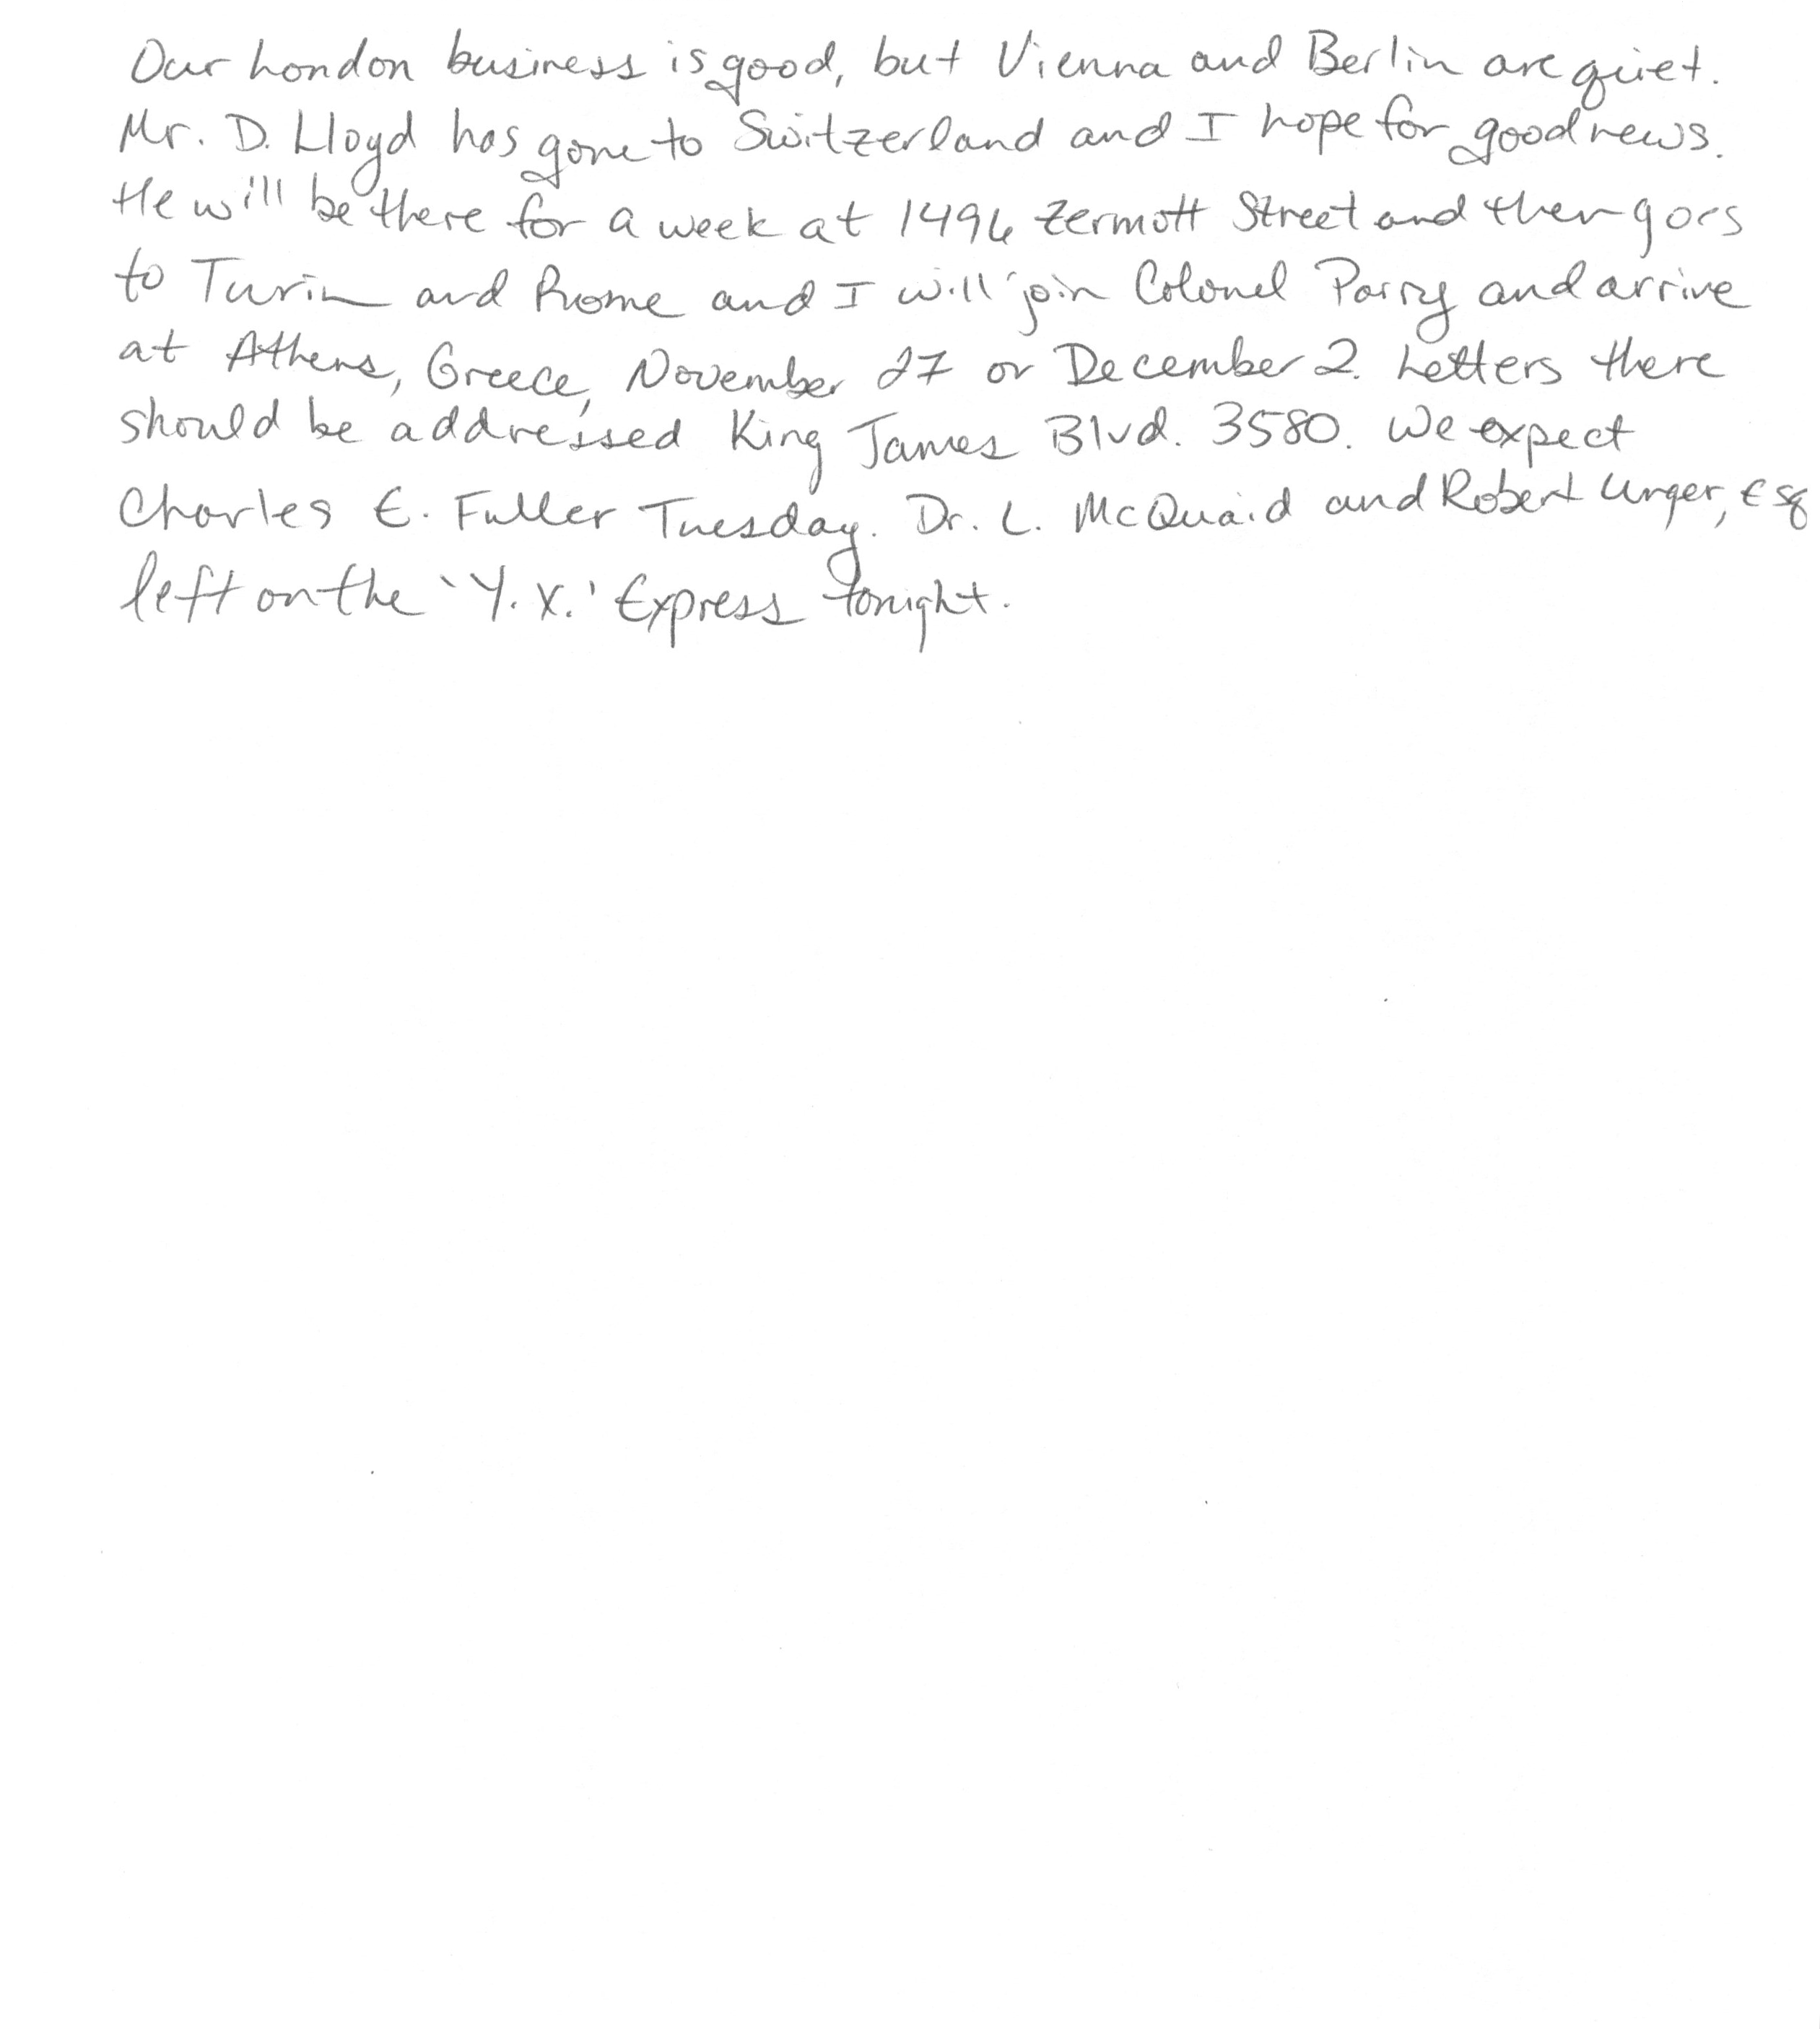 Our London business is good, but Vienna and Berlin are quiet.
Mr. D. Lloyd has gone to Switzerland and I hope for good news.
He will be there for a week at 1496 Zermott Street and then goes
to Turin and Rome and I will join Colonel Parry and arrive
at Athens, Greece, November 27 or December 2. Letters there
should be addressed King James Blvd. 3580. We expect
Charles E. Fuller Tuesday. Dr. L. McQuaid and Robert Unger, Esq
left on the 'Y. X.' Express tonight.